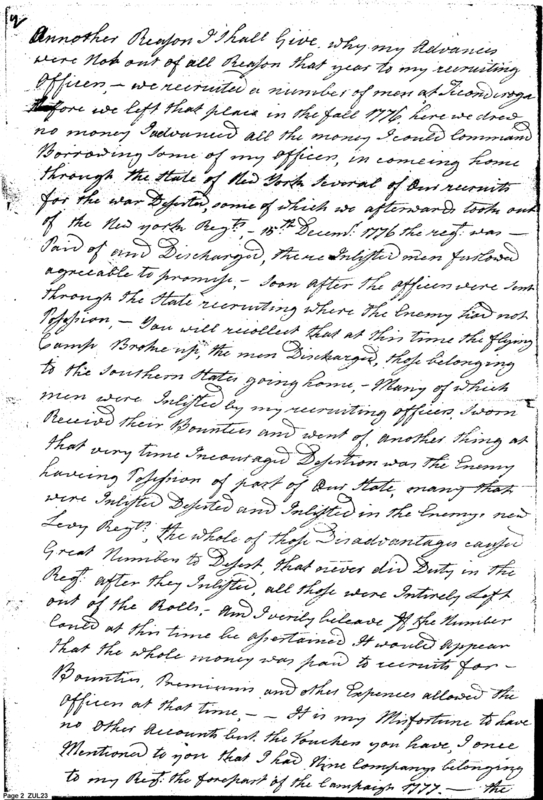 2
Annother Reason I shall Give, why my Advances
were Not out of all Reason that year to my recruiting
officers, – we recruited a number of men at Ticonderoga
before we left that place in the fall 1776, here we drew
no money I advanced all the money I could Command
Borrowing some of my officers, in comeing home
through the State of New York Several of Our recruits
for the war Deserted, some of which we afterwards took out
of the New york Regts. – 15th Decemr. 1776 the regt. was –
Paid of and Discharged, the re Inlisted men furlowed
agreeable to promise – Soon after the officers were Sent
through the State recruiting where the Enemy had not
Possession, – You will recollect that at this time the flying
Camp Broke up, the men Discharged, those belonging
to the Southern States going home, – Many of which
men were Inlisted by my recruiting officers, Sworn
Received their Bounties and went of, another thing at
that very time Incouraged Desertion was the Enemy
haveing Possession of part of Our State, many that
were Inlisted Deserted and Inlisted in the Enemys new
Levy Regts., the whole of those Disadvantages caused
Great Numbers to Desert, that never did Duty in the
Regt. after they Inlisted, all those were Intirely Left
out of the Rolls, – And I verily beleave If the Number
Could at this time be assertained It would Appear
that the whole money was paid to recruits for –
Bounties, Premiums and other Expences allowed the
officers at that time, – – It is my Misfortune to have
no Other Accounts but the Vouchers you have, I once
Mentioned to you that I had Nine Companys belonging
to my Regt. the forepart of the Campaign 1777. – the
Page 2 ZUL23